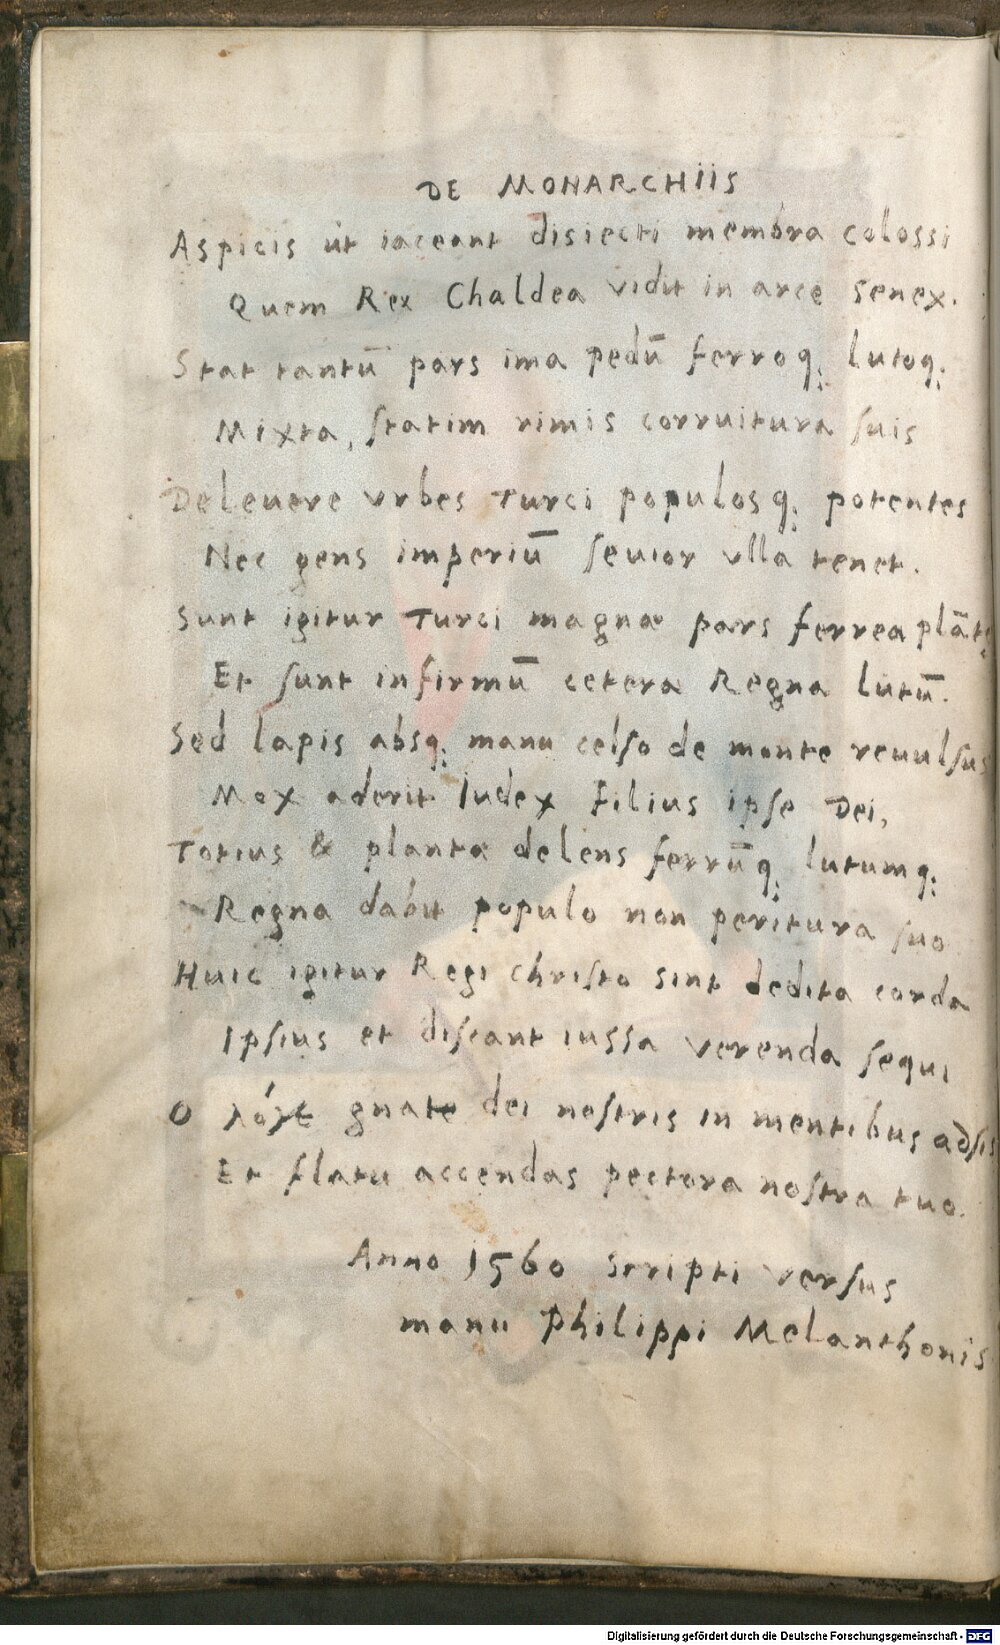 DE MONARCHIIS
Aspicis ut iaceant disiecti membra colossi
Quem Rex Chaldea vidit in arce senex.
Stat tantū pars ima pedū ferroq; lutoq;
Mixta, ſtatim rimis corruitura ſuis
Deleuere vrbes Turci populosq; potentes
Nec gens imperiū ſeuior vlla tenet.
Sunt igitur Turci magnæ pars ferrea plātę
Et ſunt infirmū cetera Regna lutū.
Sed lapis absq; manu celſo de monte reuulſus
Mox aderit Iudex Filius ipſe Dei,
Totius & plantæ delens ferrūq; lutumq;
Regna dabit populo non peritura ſuo
Huic igitur Regi Chriſto sint dedita corda
Ipſius et diſcant iussa verenda ſequi
O λόγε gnate dei noſtris in mentibus adſis
Et flatu accendas pectora noſtra tuo.
Anno 1560 scripti verſus
manu Philippi Melanthonis
Digitalisierung gefördert durch die Deutsche Forschungsgemeinschaft - DFG